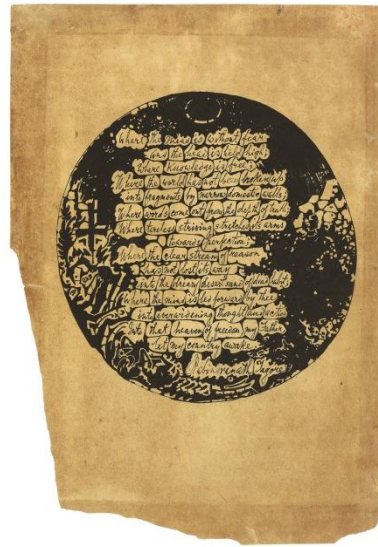 Where the mind is without fear
and the head is held high
Where knowledge is free
Where the world has not been broken up
into fragments by narrow domestic walls
Where words come out from the depth of truth
Where tireless striving stretches its arms
towards perfection;
Where the clear stream of reason
has not lost its way
into the dreary desert sand of dead habit
Where the mind is led forward by thee
into ever widening thought and action
Into that heaven of freedom, my Father
let my country awake
Rabindranath Tagore